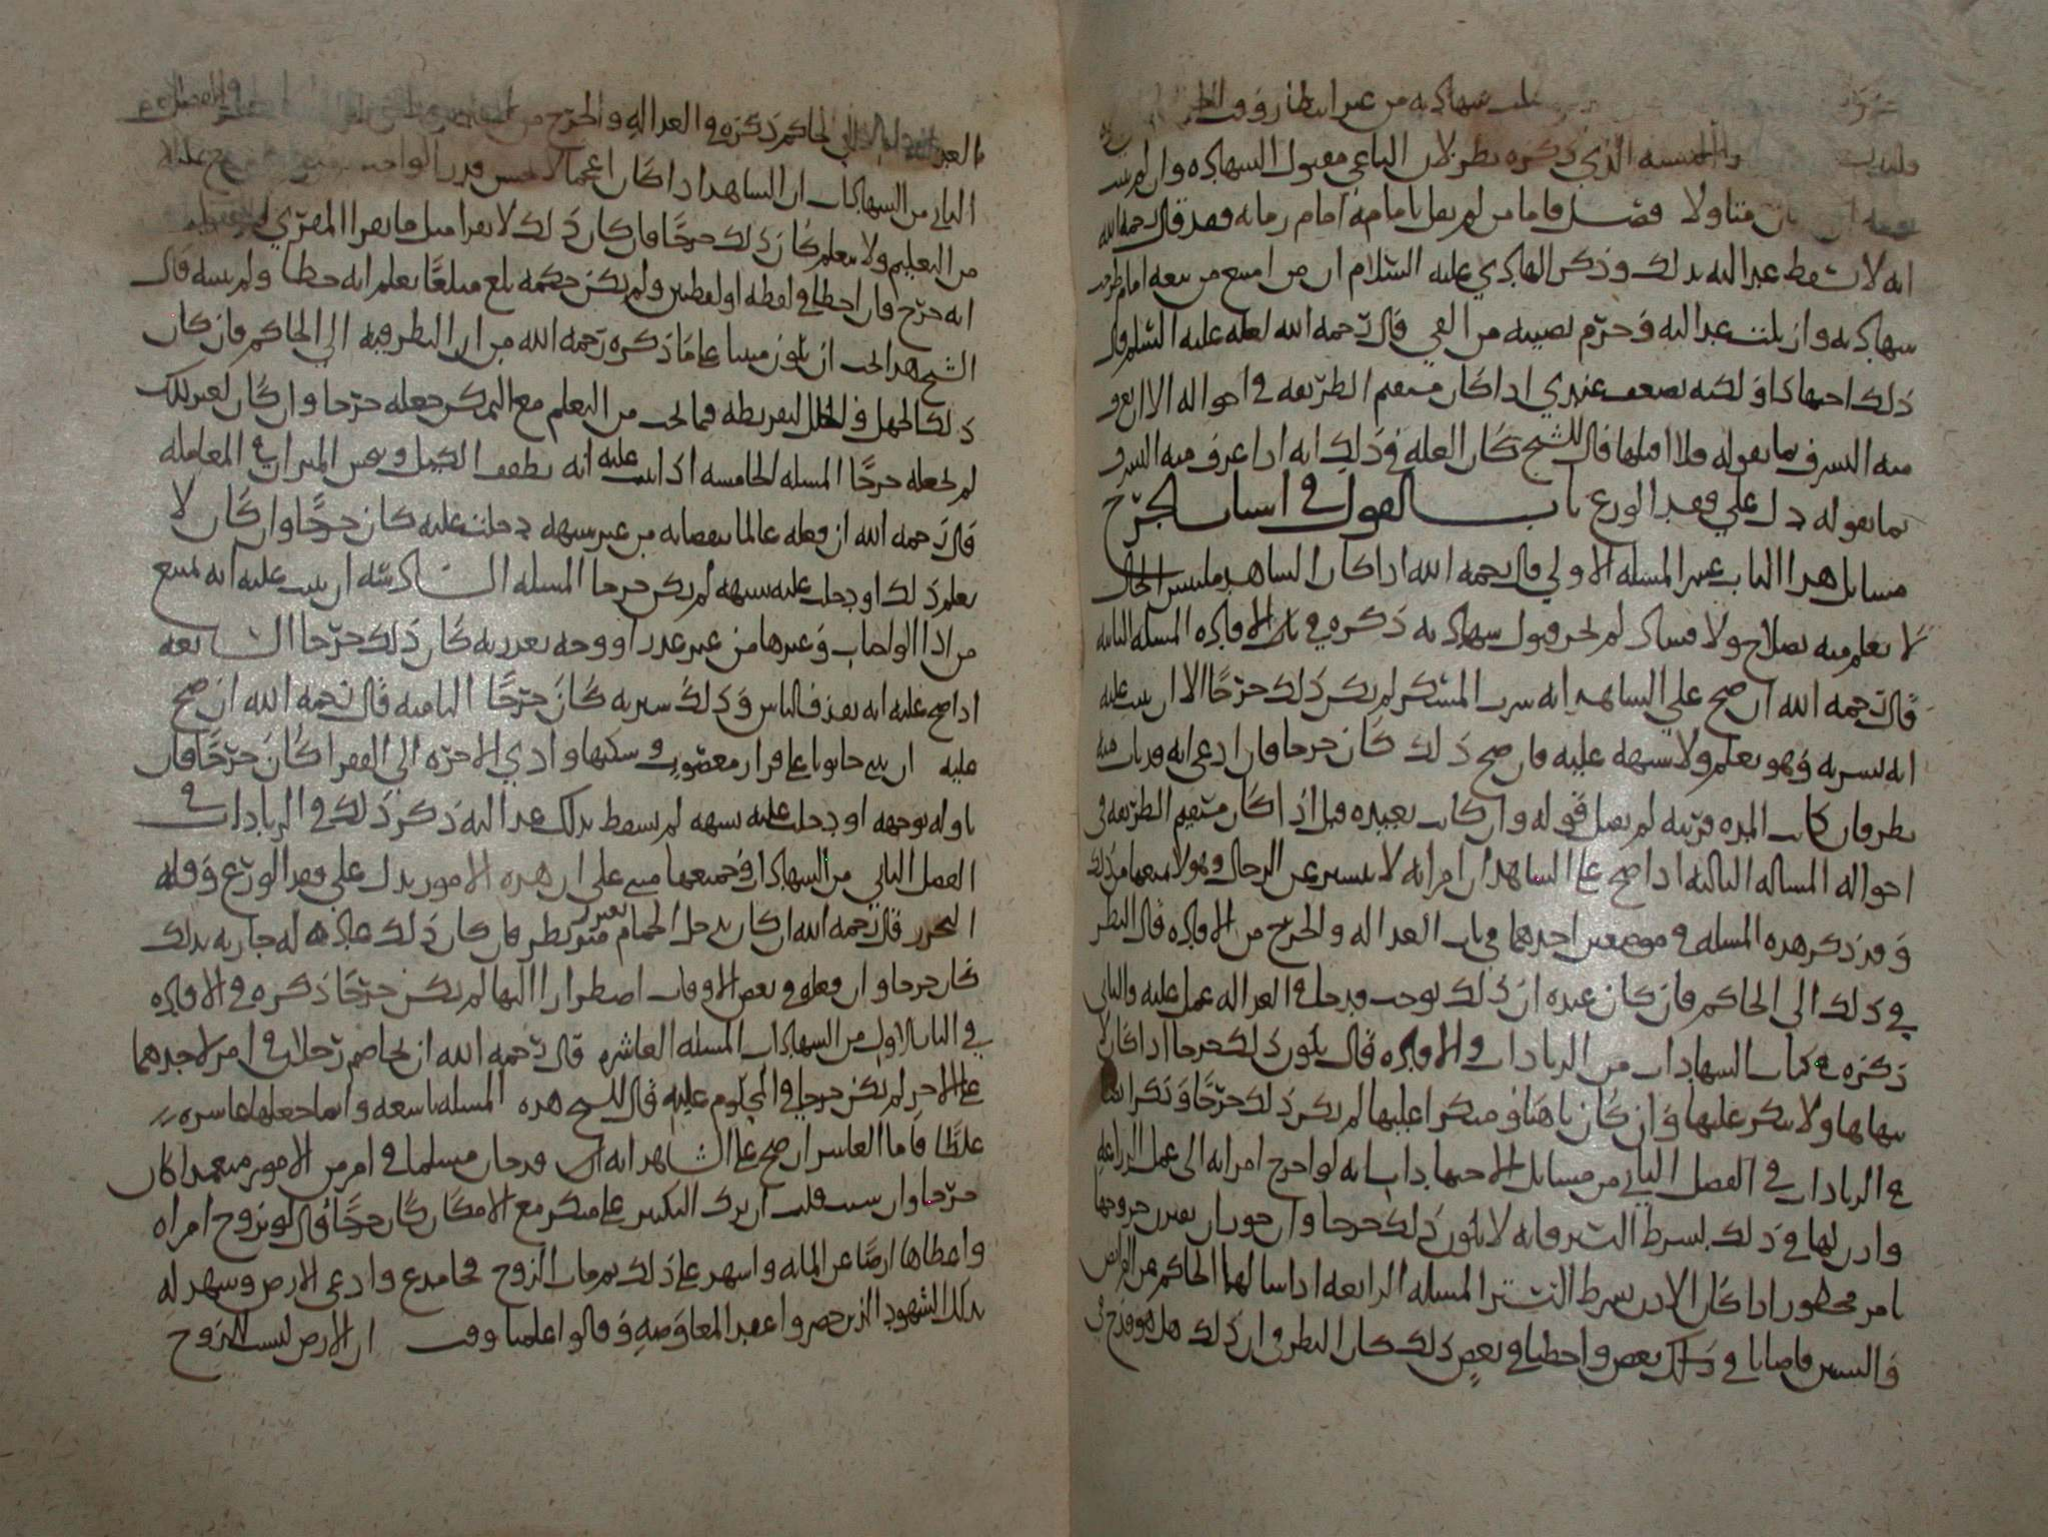 شهادته من غير انتظار وقت
والمسئلة الذي ذكره نظر لان الباغي مقبول الشهادة وان لم يثبت
متاولا فصل فاما من لم يقل بامامة امام زمانه فقد قال رحمه الله
انه لا تسقط عدالته بذلك وذكر الهادي عليه السلام ان من امتنع من بيعة امام طرحت
شهادته وازيلت عدالته وحرم نصيبه من الفي قال رحمه الله لعله عليه السلم قال
ذلك اجتهادا ولكنه يضعف عندي اذا كان مستقيم الطريقة في احواله الا ان يعرف
منه السرف بما يقوله فلا اقبلها قال الشيخ كان العلة في ذلك انه اذا عرف منه السرف
بما يقوله دل على فقد الورع باب القول في اسباب الجرح
مسائل هذا الباب عشر المسلة الاولى قال رحمه الله اذا كان الشاهد ملتبس الحال
لا يعلم منه بصلاح ولا فساد لم يجز قبول شهادته ذكره في باب الافادة المسلة الثانية
قال رحمه الله ان صح على الشاهد انه شرب المسكر لم يكن ذلك جرحا الا ان يثبت عليه
انه يشربه وهو يعلم ولا شبهة عليه فان صح ذلك كان جرحا فان ادعى انه قد تاب منه
نظر فان كانت المدة قريبة لم يقبل قوله وان كانت بعيدة قبل اذا كان مستقيم الطريقة في
احواله المسالة الثالثة اذا صح على الشاهد ان امراته لا تستتر عن الرجال وهو لا يمنعها من ذلك
وقد ذكر هذه المسلة في موضعين احدهما في باب العدالة والجرح من الافادة قال النظر
في ذلك الى الحاكم فان كان عنده ان ذلك يوجب قدحا في العدالة عمل عليه والثاني
ذكره في كتاب الشهادات من الزيادات والافادة قال يكون ذلك جرحا اذا كان لا
ينهاها ولا ينكر عليها وان كان ناهيا ومنكرا عليها لم يكن ذلك جرحا وذكر ايضا
في الزيادات في الفصل الثاني من مسائل الاجتهادات انه لو اخرج امراته الى عمل الزراعة
واذن لها في ذلك بشرط الستر فانه لا يكون ذلك جرحا وان جوز ان يقترن خروجها
بامر محظور اذا كان الاذن بشرط التستر المسلة الرابعة اذا سالهما الحاكم عن الفرائض
والسنن فاصابا في ذلك بعض واخطيا في بعض ذلك كان النظر في ان ذلك هل هو قدح في
العدالة الى الحاكم ذكره في العدالة والجرح من
الثاني من الشهادات ان الشاهد اذا كان اعجميا لا يحسن قدر الواجب
من التعليم ولا يتعلم كان ذلك جرحا فان كان ذلك لا يقرا مثل ما يقرا المقري
انه جرح فان اخطا في لفظة او لفظتين ولم يكن حكمه بلغ مبلغا يعلم انه خطا ولم يتنبه قال
الشيخ هذا يجب ان يكون مبنيا على ما ذكره رحمه الله من ان النظر فيه الى الحاكم فان كان
ذلك الجهل والخلل لتفريطه فيما يجب من التعلم مع التمكن جعله جرحا وان كان لغير ذلك
لم يجعله جرحا المسلة الخامسة اذا ثبت عليه انه يطفف الكيل وبخس الميزان في المعاملة
قال رحمه الله ان فعله عالما بنقصانه من غير شبهة دخلت عليه كان جرحا وان كان لا
يعلم ذلك او دخلت عليه شبهة لم يكن جرحا المسلة السادسة ان يثبت عليه انه يمتنع
من اداء الواجبات وغيرها من غير عذر او وجه يعذر به كان ذلك جرحا السابعة
اذا صح عليه انه يقذف الناس وذلك سيرته كان جرحا الثامنة قال رحمه الله ان صح
عليه ان بنى حانوتا على قرار مغصوب وسكنها وادى الاجرة الى الفقرا كان جرحا فان
تاوله بوجهه او دخلت عليه شبهة لم تسقط بذلك عدالته ذكر ذلك في الزيادات في
الفصل الثاني من الشهادات وجميعها مبني على ان هذه الامور تدل على فقد الورع وقلة
التحرز قال رحمه الله ان كان يدخل الحمام بغير مئزر نظر فان كان ذلك عادة له جارية بذلك
كان جرحا وان فعله في بعض الاوقات اضطرارا اليها لم يكن جرحا ذكره في الافادة
في الباب الاول من الشهادات المسلة العاشرة قال رحمه الله ان تخاصم رجلان في امر لاحدهما
على الاخر لم يكن جرحا في المحكوم عليه قال الشيخ هذه المسلة تاسعة وانما جعلها عاشرة
غلطا فاما العاشر ان صح على الشاهد انه قد خان مسلما في امر من الامور متعمدا كان
جرحا وان ترك النكير على منكر مع الامكان كان جرحا قال لو تزوج امراة
واعطاها ارضا عن الماية واشهد على ذلك ثم مات الزوج فجا مدع وادعى الارض وشهد له
بذلك الشهود الذين حضروا عقد المعاوضة وقالوا علمنا وقت ان الارض ليست للزوج